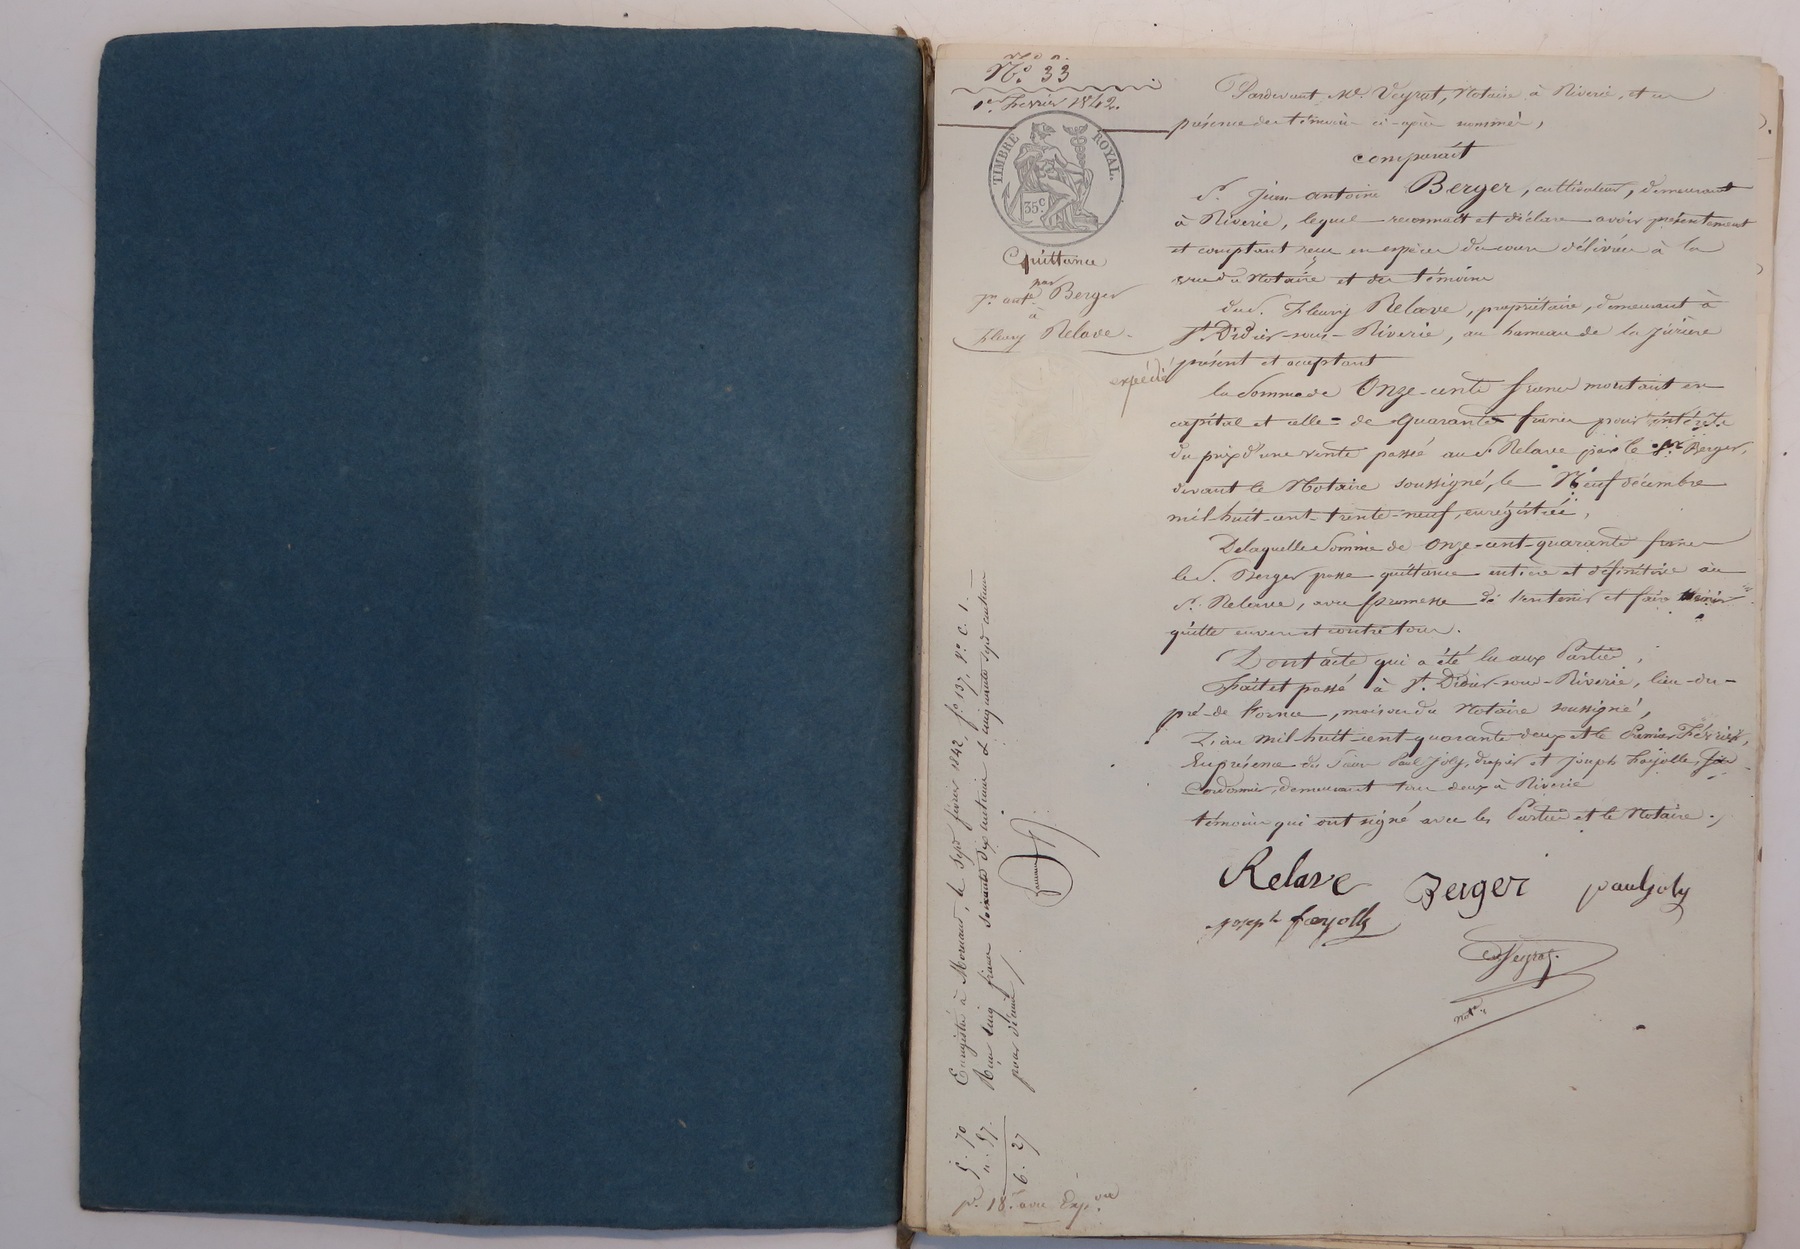 N.° 33
1er Février 1842.
TIMBRE ROYAL.
35 c
Quittance
par
Jn. ant.e Berger
à
Fleury Relave.
expédié
Pardevant Me. Veyrat, Notaire à Riverie, et en
présence des témoins ci-après nommés,
comparait
S. Jean-antoine Berger, cultivateur, demeurant
à Riverie, lequel reconnait et déclare avoir présentement
et comptant reçu en espèces du cours délivrées à la
vue du Notaire et des témoins
du S. Fleury Relave, propriétaire, demeurant à
St. Didier-sous-Riverie, au hameau de la
présent et acceptant
la Somme de Onze-cents francs montant en
capital et celle de Quarante francs pour intérêts
du prix d'une vente passée au S. Relave par le Sr. Berger,
devant le Notaire soussigné, le Neuf décembre
mil-huit-cent-trente-neuf, enregistrée,
De laquelle Somme de Onze-cent-quarante francs
le S. Berger passe quittance entière et définitive au
S. Relave, avec promesse de l'en tenir et faire tenir
quitte envers et contre tous.
Dont acte qui a été lu aux Parties,
Fait et passé à St. Didier-sous-Riverie, lieu-du-
pré-de, maison du Notaire soussigné,
L'an mil-huit-cent-quarante deux et le Premier Février,
En présence des Sieurs Paul Joly, drapier et Joseph Fayolle,
Cordonnier, demeurant tous deux à Riverie
témoins qui ont signé avec les Parties et le Notaire.
Relave Berger paul joly
Joseph fayolle
Veyrat
Not.re
Enregistré à Mornant, le Sept février 1842, f.o 137, v.o c. 1.
Reçu cinq francs soixante dix centimes & cinquante sept centimes
pour décime
5. 70
". 57.
6. 27
18. avec Exp.